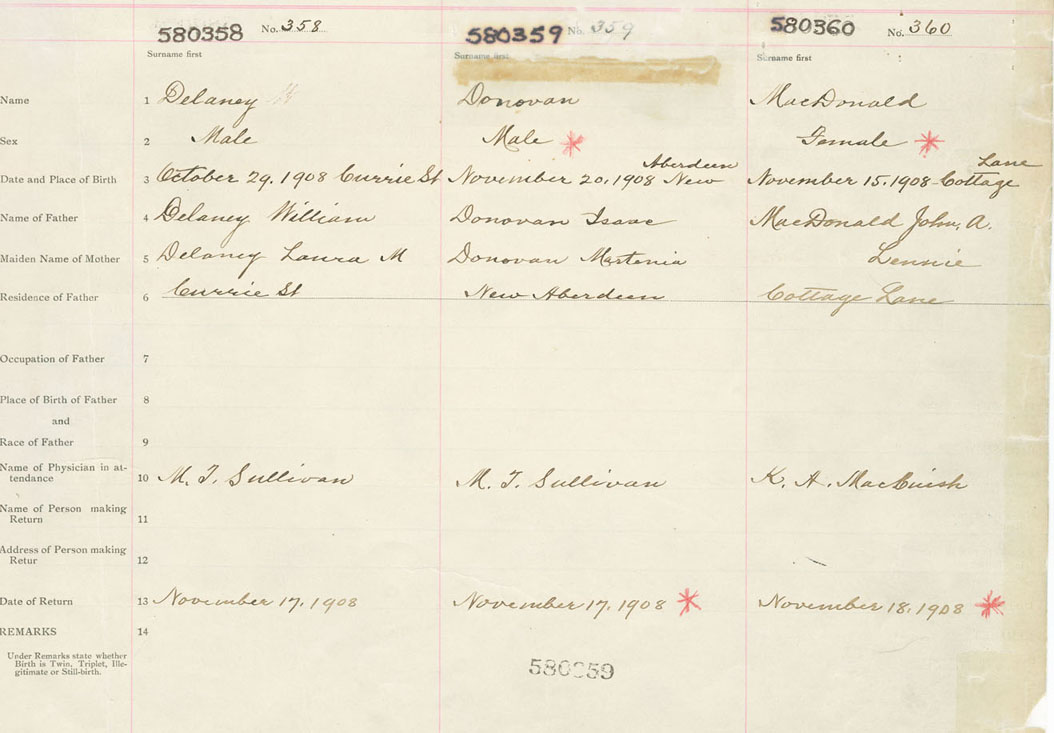 580358 No. 358 580359 No. 359 580360 No. 360
Surname first Surname first Surname first
Name 1 Delaney Donovan MacDonald
Sex 2 Male Male * Female *
Aberdeen Lane
Date and Place of Birth 3 October 29, 1908 Currie St November 20, 1908 New November 15, 1908 Cottage
Name of Father 4 Delaney William Donovan Isaac MacDonald John, A.
Maiden Name of Mother 5 Delaney Laura M Donovan Lennie
Residence of Father 6 Currie St New Aberdeen Cottage Lane
Occupation of Father 7
Place of Birth of Father 8
and
Race of Father 9
Name of Physician in at-
tendance 10 M. T. Sullivan M. T. Sullivan K. A. MacCuish
Name of Person making
Return 11
Address of Person making
Retur 12
Date of Return 13 November 17, 1908 November 17, 1908 * November 18, 1908 *
REMARKS 14
Under Remarks state whether
Birth is Twin, Triplet, Ille-
gitimate or Still-birth.
580359